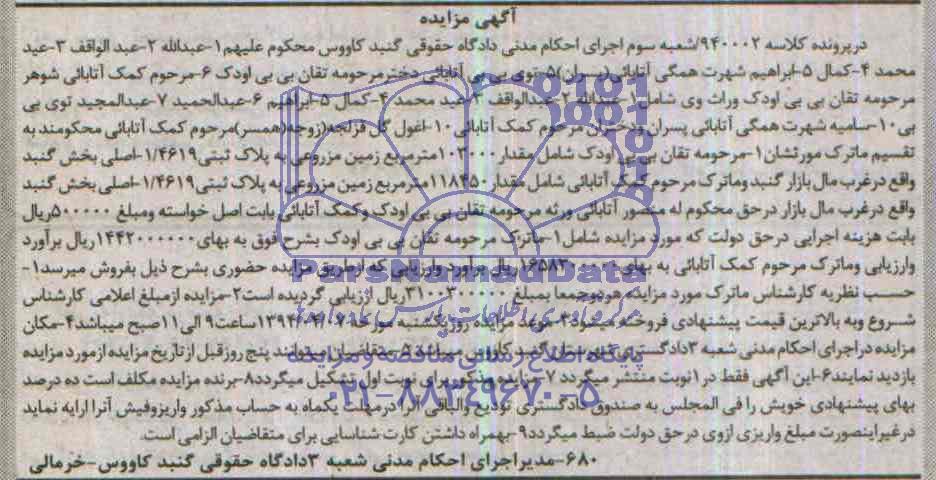 آگهی مزایده
درپرونده کلاسه ۹۴۰۰۰۲/شعبه سوم اجرای احکام مدنی دادگاه حقوقی گنبد کاووس محکوم علیهم۱-عبدالله ۲-عبد الواقف ۳-عید
محمد ۴-کمال ۵-ابراهیم شهرت همگی آتابائی(پسران)۵-توی بی بی آتابائی دخترمرحومه تقان بی بی اودک ۶-مرحوم کمک آتابائی شوهر
مرحومه تقان بی بی اودک وراث وی شامل۱-عبدالله ۲-عبدالواقف ۳-عید محمد ۴-کمال ۵-ابراهیم ۶-عبدالحمید ۷-عبدالمجید توی بی
بی۱۰-سامیه شهرت همگی آتابائی پسران ودختران مرحوم کمک آتابائی۱۰-اغول گل قزلجه(زوجه(همسر)مرحوم کمک آتابائی محکومند به
تقسیم ماترک مورثشان۱-مرحومه تقان بی بی اودک شامل مقدار۱۰۳۰۰۰مترمربع زمین مزروعی به پلاک ثبتی۱/۴۶۱۹-اصلی بخش گنبد
واقع درغرب مال بازار گنبد وماترک مرحوم کمک آتابائی شامل مقدار۱۱۸۴۵۰مترمربع زمین مزروعی به پلاک ثبتی۱/۴۶۱۹-اصلی بخش گنبد
واقع درغرب مال بازار درحق محکوم له منصور آتابائی ورثه مرحومه تقان بی بی اودک وکمک آتابائی بابت اصل خواسته ومبلغ ۵۰۰۰۰۰ریال
بابت هزینه اجرایی درحق دولت که مورد مزایده شامل۱-ماترک مرحومه تقان بی بی اودک بشرح فوق به بهای۱۴۴۲۰۰۰۰۰۰ریال برآورد
وارزیابی وماترک مرحوم کمک آتابائی به بهای ریال برآورد وارزیابی که ازطریق مزایده حضوری بشرح ذیل بفروش میرسد۱-
حسب نظریه کارشناس ماترک مورد مزایده هردوجمعا بمبلغ۳۱۰۰۳۰۰۰۰۰ریال ارزیابی گردیده است۲-مزایده ازمبلغ اعلامی کارشناس
شروع وبه بالاترین قیمت پیشنهادی فروخته میشود۳-موعد مزایده روز یکشنبه مورخه ۱۳۹۴/۰۴/۰۷ساعت۹ الی۱۱صبح میباشد۴-مکان
مزایده دراجرای احکام مدنی شعبه ۳دادگستری شهرستان گنبد کاووس میباشد۵-متقاضیان میتوانند پنج روزقبل ازتاریخ مزایده ازمورد مزایده
بازدید نمایند۶-این آگهی فقط در۱نوبت منتشر میگردد ۷-مزایده مذکور برای نوبت اول تشکیل میگردد۸-برنده مزایده مکلف است ده درصد
بهای پیشنهادی خویش را فی المجلس به صندوق دادگستری تودیع والباقی آنرا درمهلت یکماه به حساب مذکور واریزوفیش آنرا ارایه نماید
درغیراینصورت مبلغ واریزی ازوی درحق دولت ضبط میگردد۹-بهمراه داشتن کارت شناسایی برای متقاضیان الزامی است.
۶۸۰-مدیراجرای احکام مدنی شعبه ۳دادگاه حقوقی گنبد کاووس-خرمالی
ParsNamadData
پایگاه اطلاع رسانی مناقصه و مزایده
۰۲۱-۸۸۳۴۹۶۷۰-۵